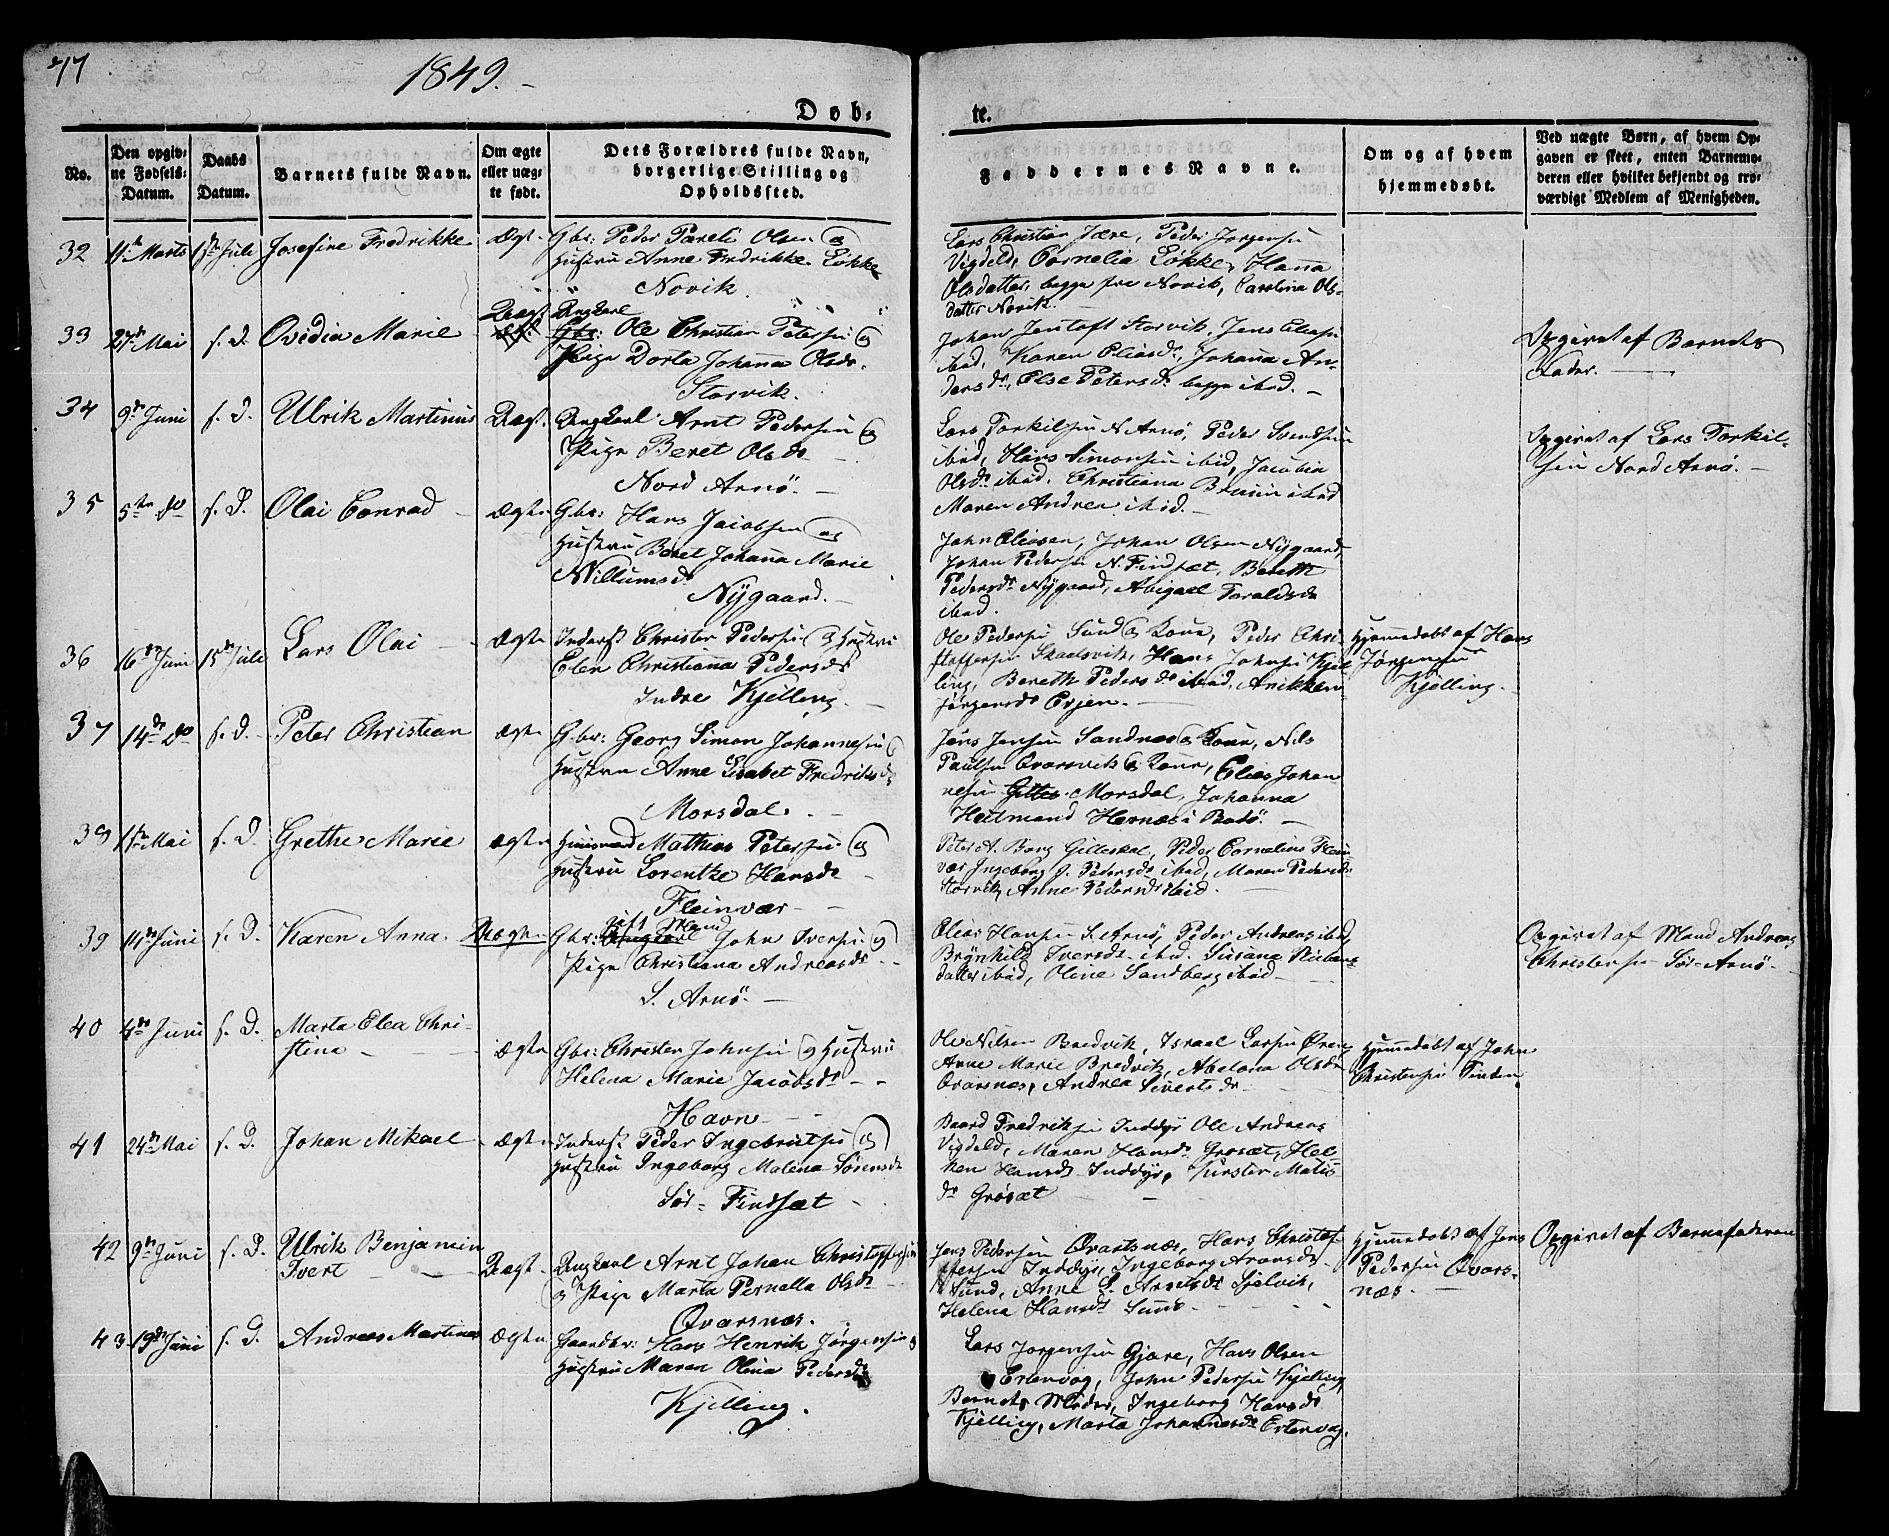 77
1849.
Døb-
te.
No.
Den opgiv-
ne Fødsels-
Datum.
Daabs
Datum.
Barnets fulde Navn.
Om ægte
eller uæg-
te født.
Dets Forældres fulde Navn,
borgerlige Stilling og
Opholdssted.
Faddernes Navne.
Om og af hvem
hjemmedøbt.
Ved uægte Børn, af hvem Op-
gaven er skeet, enten Barnemo-
deren eller hvilket bekjendt og tro-
værdigt Medlem af Menigheden.
32 11te Marts 1ste Juli Josefine Fredrikke Ægte Gbr: Peder Pareli Olsen og
Hustru Anne Fredrikke Løkke
Novik.
Lars Christian Jære, Peder Jørgensen
Vigdel, Cornelia Løkke, Hanna
Olsdatter, begge fra Novik, Carolina Ols-
datter Novik.
33 27de Mai s. D. Ovedia Marie Uægte Ungkarl
Gbr: Ole Christian Petersen og
Pige Dorta Johanna Olsd.
Storvik.
Johan Jentoft Storvik, Jens Eliasen
ibid, Karen Eliasd., Johanna An-
dersdr, Else Petersdr begge ibid.
Opgivet af Barnets
Fader.
34 9de Juni s. D. Ulrik Martinus Uægt. Ungkarl Arnt Pedersen og
Pige Beret Olsdr
Nord Arnö.
Lars Torkilsen N. Arnö, Peder Svendsen
ibid, Hans Simonsen ibid, Jacobia
Olsdr ibid. Christiana Bruun ibid
Maren Andrea ibid.
Opgivet af Lars Torkil-
sen Nord Arnö.
35 5te do s. D. Olai Conrad Ægte Gbr: Hans Jacobsen og
Hustru Beret Johanna Marie
Willumsdr
Nÿgaard.
John Eliasen, Johan Olsen Nÿgaard,
Johan Pedersen N. Findsæt, Bereth
Pedersdr Nÿgaard, Abigael Taraldsdr
ibid.
36 16de Juni 15de Juli Lars Olai Ægte Inderst Christen Pedersen og Hustru
Elen Christianna Pedersdr
Indre Kjelling.
Ole Pedersen Sund og Kone, Peder Chri-
stoffersen Skaalsvik, Hans Johnsen Kjel-
ling, Bereth Pedersdr ibid, Anikken
Jørgensdr Evjen.
Hjemmedøbt af Hans
Jørgensen
Kjelling.
37 14de do s. D. Peter Christian Ægte Gbr: Georg Simon Johannesen og
Hustru Anne Lisabet Fredriksdr
Morsdal.
Jens Jensen Sandnæs og Kone, Nils
Paulsen Qvarsvik og Kone, Elias Johan-
nesen Morsdal, Johanna
Heitmand Hernæs i Bodö.
39 1ste Mai s. D. Grethe Marie Ægte Huusmand Mathias Petersen og
Hustru Lorentze Hansdr
Fleinvær
Peter A. Bang Gilleskal, Peder Cornelius Flein-
vær Ingeborg J. Pedersdr ibid, Maren Pedersdr
Storvik, Anne Pedersdr ibid.
39 11te Juni s. D. Karen Anna. Uægte. gift Mand
Gbr: Ungkarl John Iversen og
Pige Christiana Andreasdr
S. Arnö.
Elias Hansen S. Arnö, Peder Andreas ibid,
Brÿnhild Iversdr ibid. Susana
datter ibid, Oline Sandberg ibid
Opgivet af Mand Andreas
Christensen Sör-Arnö.
40 4de Juni s. D. Marta Elea Chri-
stina Ægte Gbr: Christen Johnsen og Hustru
Helena Marie Jacobsdr
Havn
Ole Nilsen Bredvik, Israel Larsen Øren,
Anne Marie Bredvik, Abelona Olsdr
Qvarsnæs, Andrea Sivertsdr
Hjemmedøbt af John
Christensen Tinden
41 24de Mai s. D. Johan Mikael Ægte Inderst Peder Ingebrictsen og
Hustru Ingeborg Malena Sørensdr
Sör-Findsæt
Baard Fredriksen Inddÿr Ole Andreas
Vigdeld, Maren Hansdr Grosæt, Hel-
ken Hansdr Inddÿr, Kirsten Matis
dr Grosæt
42 9de Juni s. D. Ulrik Benjamin
Ivert Uægt. Ungkarl Arnt Johan Christoffersen
og Pige Marta Pernella Olsdr
Qvarsnæs.
Jens Pedersen Qvarsnæs, Hans Christof-
fersen Inddÿr, Ingeborg Aronsdr
Sund, Anne L. Arntsdr Sjelvik,
Helena Hansdr Sund
Hjemmedøbt af Jens
Pedersen Qvars-
næs.
Opgivet af Barnefaderen
43 19de Juni s. D. Andreas Martinus Ægte Gaardbr: Hans Henrik Jørgensen og
Hustru Maren Olina Pedersdr
Kjelling.
Lars Jørgensen Gjære, Hans Olsen
Ertenvag, John Pedersen Kjelling,
Barnets Moder, Ingeborg Hansdr
Kjelling, Marta Johannesdr Ertenvag.